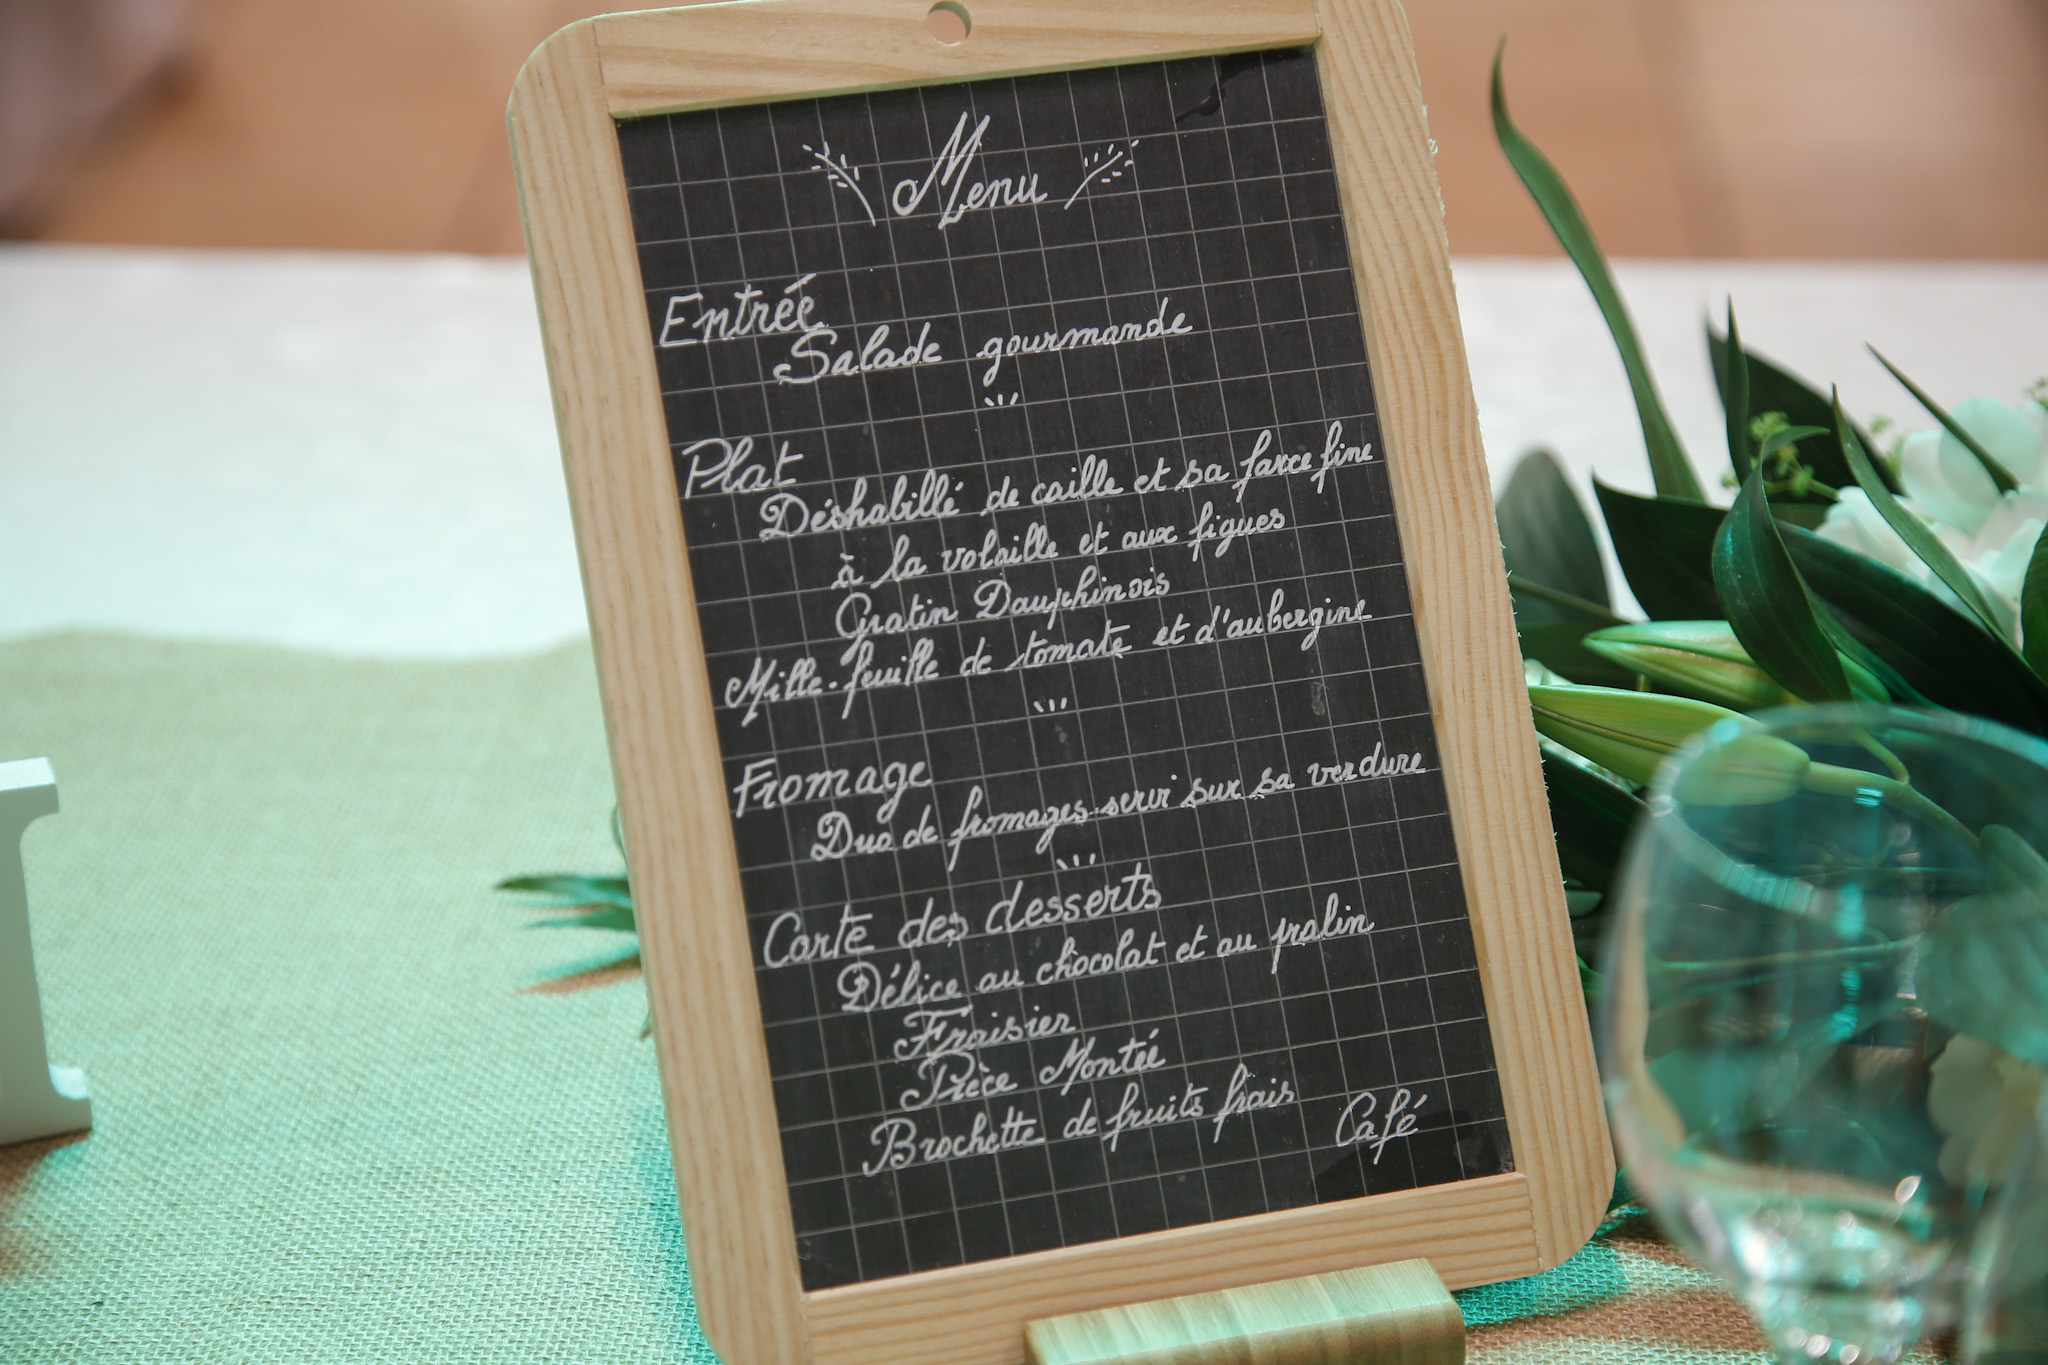 Menu
Entrée
Salade gourmande
Plat
Déshabillé de caille et sa farce fine
à la volaille et aux figues
Gratin Dauphinois
Mille-feuille de tomate et d'aubergine
Fromage
Duo de fromages servi sur sa verdure
Carte des desserts
Délice au chocolat et au pralin
Fraisier
Pièce Montée
Brochette de fruits frais
Café